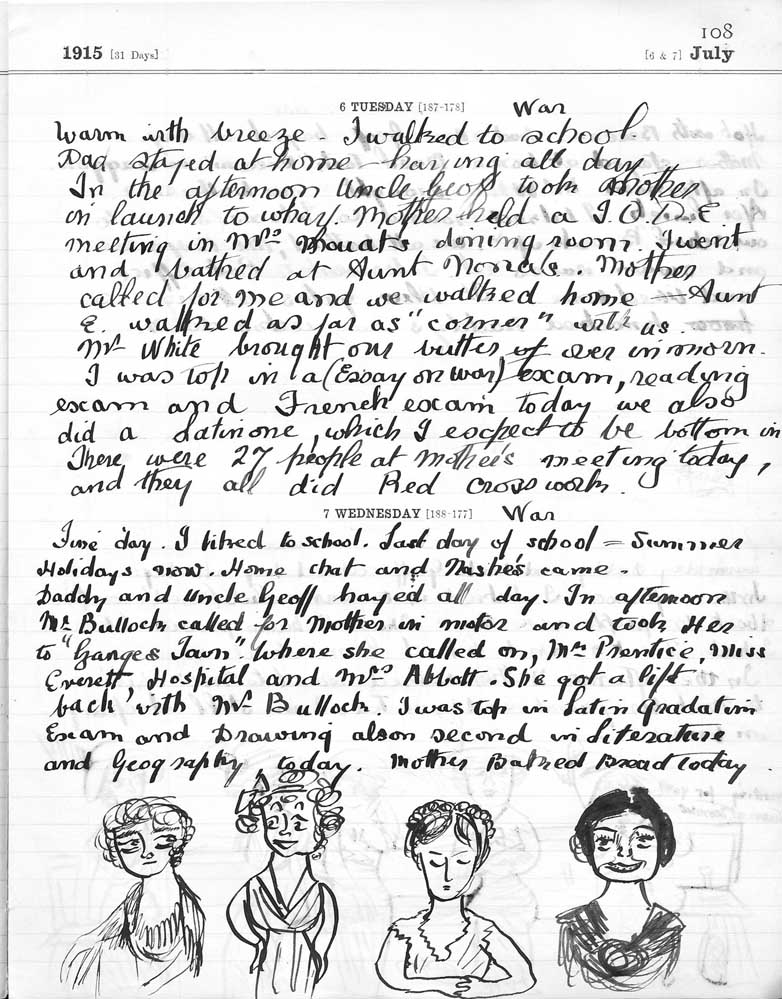 108
1915 [31 Days] [6 & 7] July
6 TUESDAY [187-178] War
Warm with breeze - I walked to school.
Dad stayed at home - haying all day
In the afternoon Uncle Geoff took Mother
in launch to wharf. Mother held a I.O.D.E
meeting in Mrs Mouat's dining room. I went
and bathed at Aunt Nona's. Mother
called for me and we walked home - Aunt
E. walked as far as "corner" with us.
Mr White brought our butter over in morn.
I was top in a (Essay on war) exam, reading
exam and French exam today we also
did a Latin one, which I expect to be bottom in
There were 27 people at Mother's meeting today,
and they all did Red Cross work.
7 WEDNESDAY [188-177] War
Fine day. I biked to school. Last day of school = Summer
Holidays now. Home chat and came.
Daddy and Uncle Geoff hayed all day. In afternoon
Mr Bullock called for Mother in motor and took Her
to "Ganges Town". Where she called on, Mrs Prentice, Miss
Everett, Hospital and Mrs Abbott. She got a lift
back with Mr Bullock. I was top in Latin Gradation
Exam and Drawing also second in Literature
and Geography today. Mother Baked Bread today.